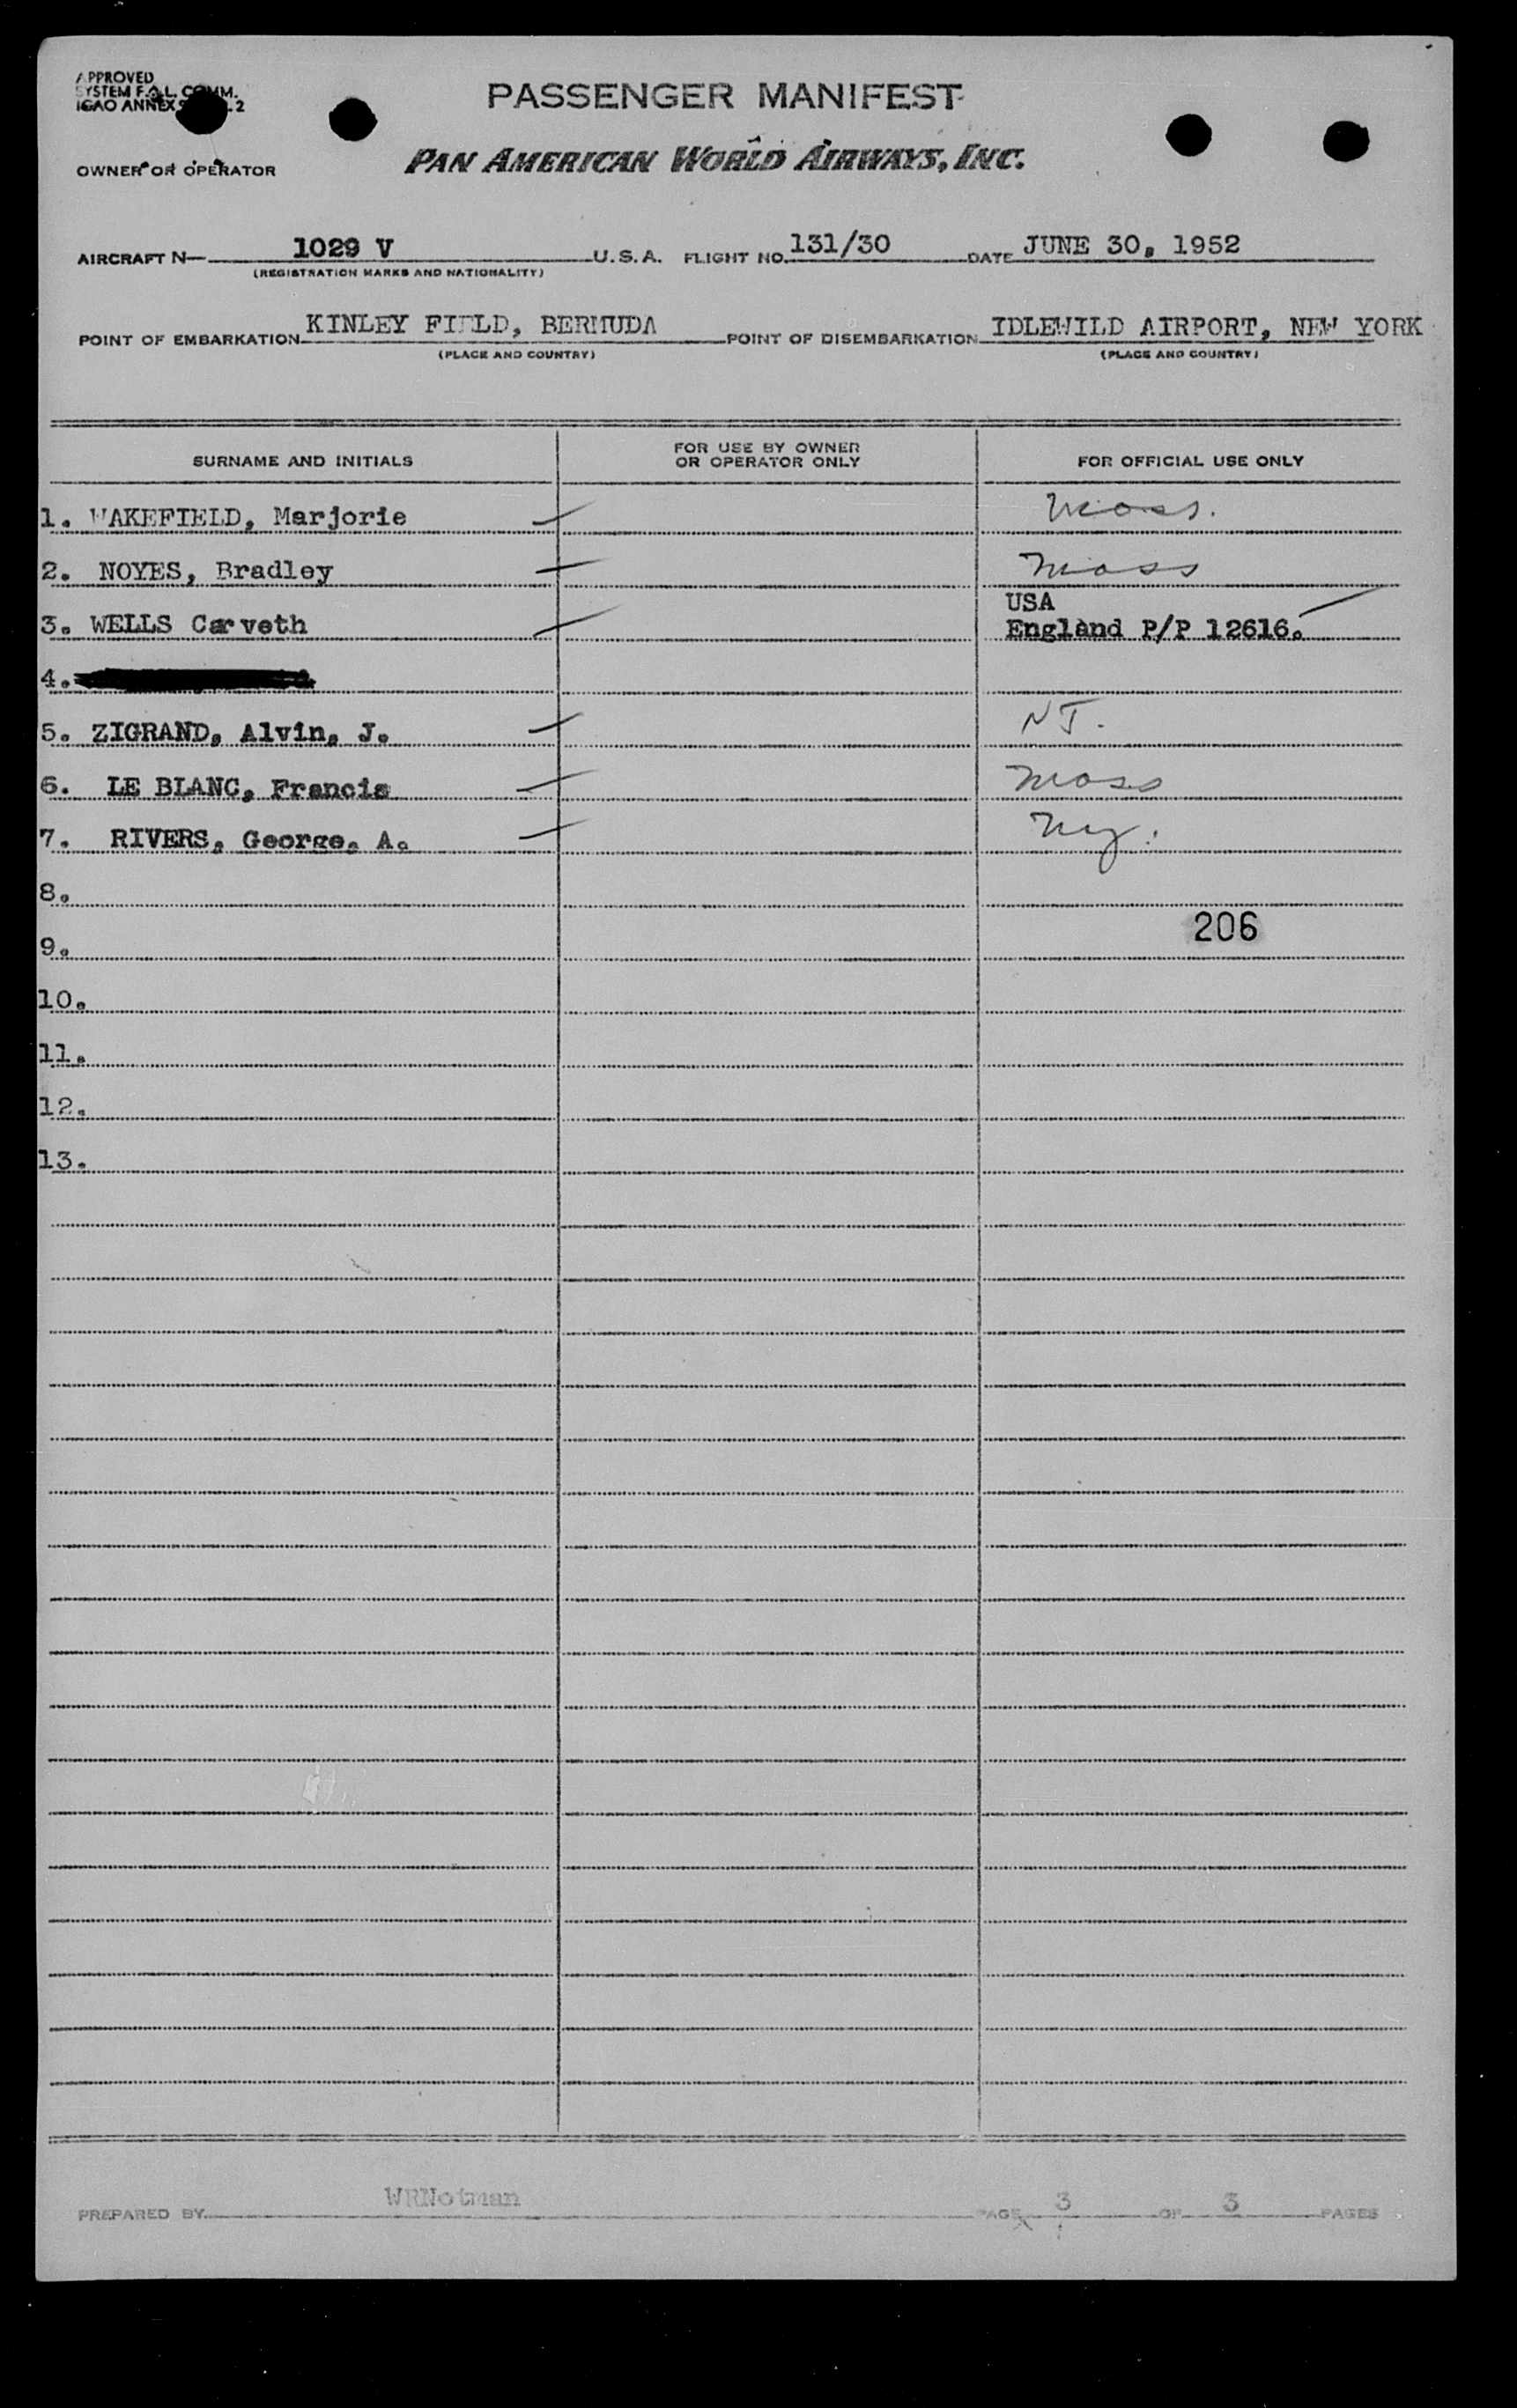 APPROVED
SYSTEM F.A.L. COMM.
ICAO ANNEX 2
PASSENGER MANIFEST
OWNER OR OPERATOR PAN AMERICAN WORLD AIRWAYS, INC.
AIRCRAFT N— 1029 V U.S.A. FLIGHT NO. 131/30 DATE JUNE 30, 1952
(REGISTRATION MARKS AND NATIONALITY)
POINT OF EMBARKATION KINLEY FIELD, BERMUDA POINT OF DISEMBARKATION IDLEWILD AIRPORT, NEW YORK
(PLACE AND COUNTRY) (PLACE AND COUNTRY)
SURNAME AND INITIALS FOR USE BY OWNER OR OPERATOR ONLY FOR OFFICIAL USE ONLY
1. WAKEFIELD, Marjorie Mass.
2. NOYES, Bradley Mass
USA
3. WELLS Carveth England P/P 12616.
4.
5. ZIGRAND, Alvin, J. NJ.
6. LE BLANC, Francis Mass
7. RIVERS, George, A. Ny.
8.
206
9.
10.
11.
12.
13.
PREPARED BY WRNotman PAGE 3 OF 3 PAGES